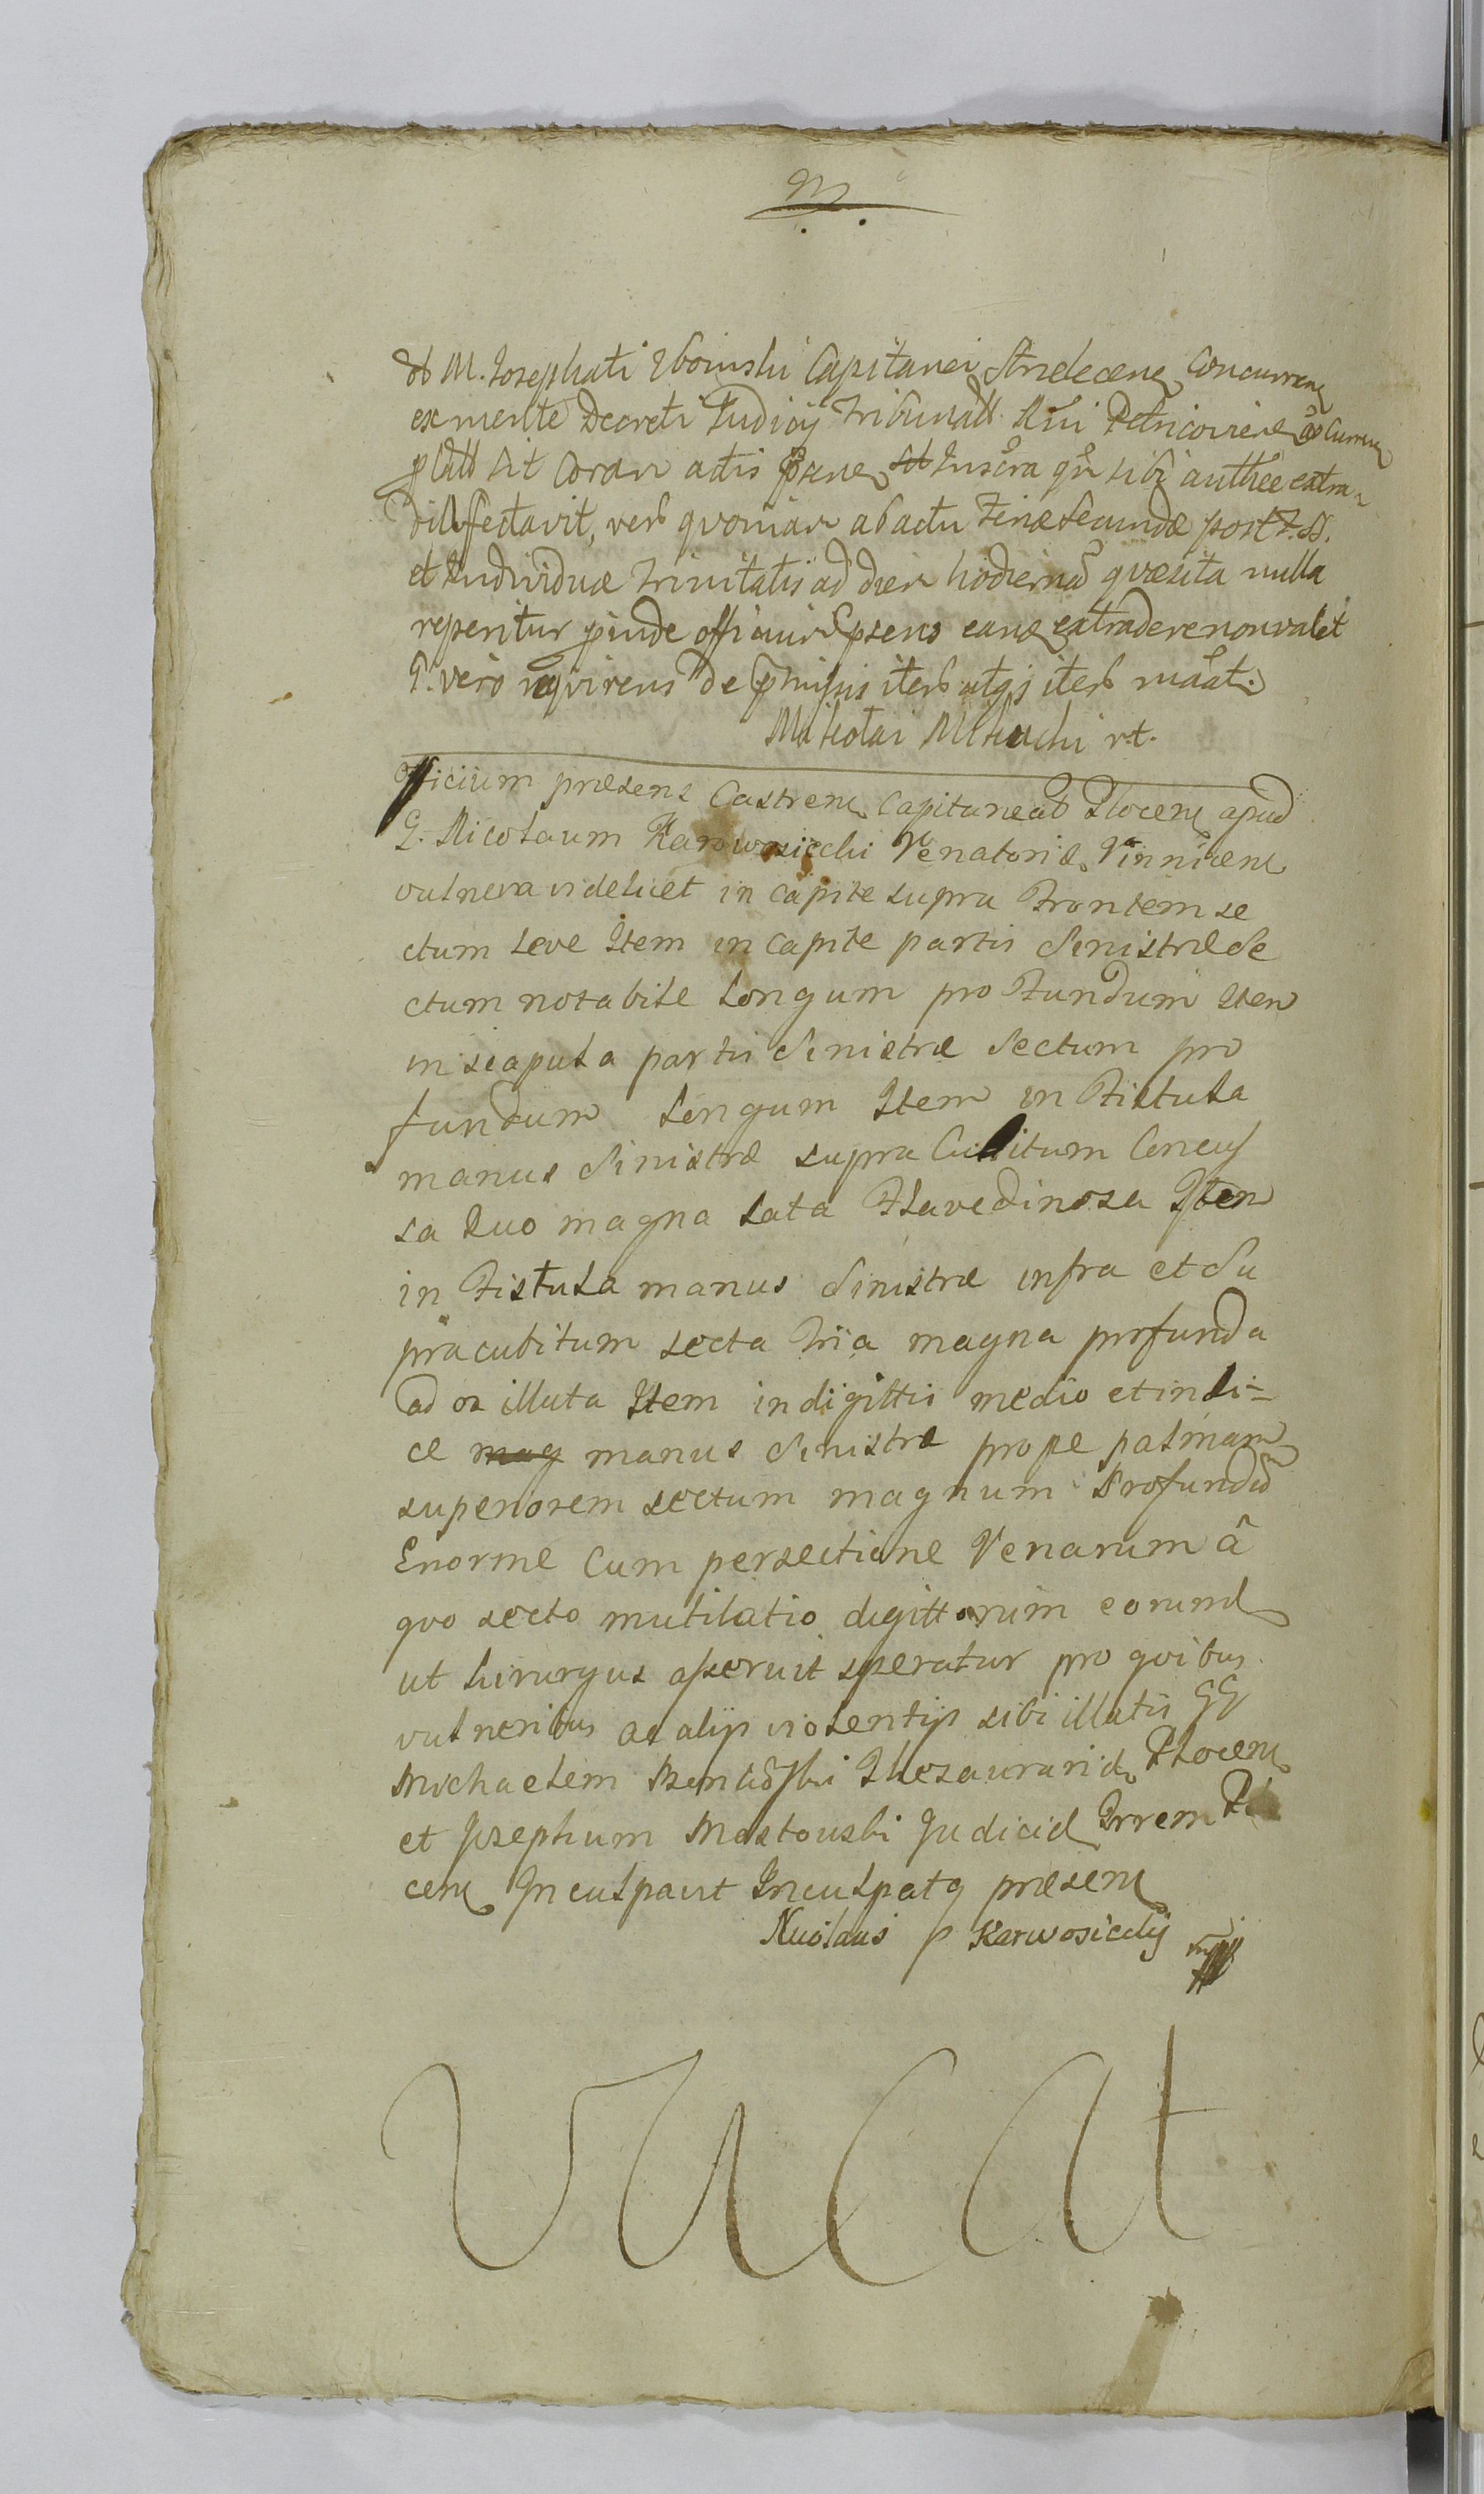 M. Josephati Zboinski Capitanei Concurren
ex mente Decreti Judicij Tribunall. Petricovien
sit Coram actis sibi authce extra-
di affectavit, vero qvoniam ab actu Feriæ Secundæ post F. SS.
et Individuæ Trinitatis ad diem hodiernã qvæsita nulla
reperitur officium psens eand extradere non valet
vero reqvirens de
Mikołai rt.
Officium præsens Castren Capitaneat Plocen apud
G. Nicolaum Karwosiecki Venatorid Vinnicen
vulnera videlicet in capite supra Frontem se
ctum leve Item in capite partis Sinistræ se
ctum notabile longum profundum Item
in scapula partis Sinistræ Sectum pro
fundum longum Item in Fistula
manus Sinistræ supra Cubitum Concus
sa duo magna lata Flavedinosa Item
in Fistula manus Sinistræ infra et Su
pra cubitum secta tria magna profunda
ad os illata Item in digittis medio et indi=
ce mag manus Sinistræ prope palmam
superiorem sectum magnum Profundũ
Enorme Cum persectione Venarum â
qvo secto mutilatio digittorum eorund
ut hirurgus asseruit speratur pro qvibus
vulneribus ac alijs violentijs sibi illatis GG
Michaelem Thesaurarid Plocen
et Josephum Mostowski Judicid Trrem Plo
cen Inculpavit Inculpatq præsen
Nicolaus p Karwosiecky mp
Vacat